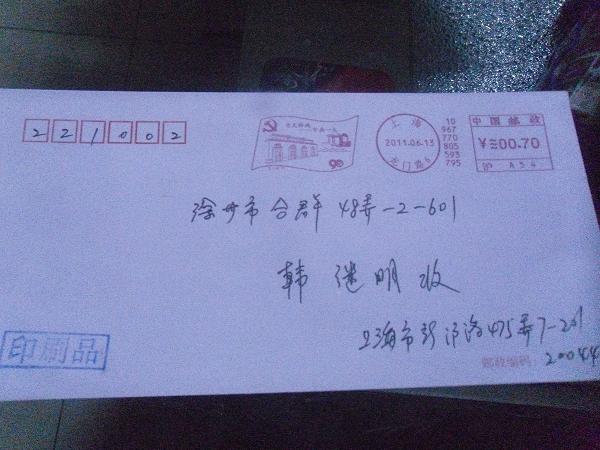 221002
90
上海
2011.06.13
10
967
770
805
593
795
中国邮政
¥≡00.70
沪 A54
徐州市 合群 48弄-2-601
韩 继 明 收
上海市新沪路475弄7-201
印刷品
邮政编码:
20044